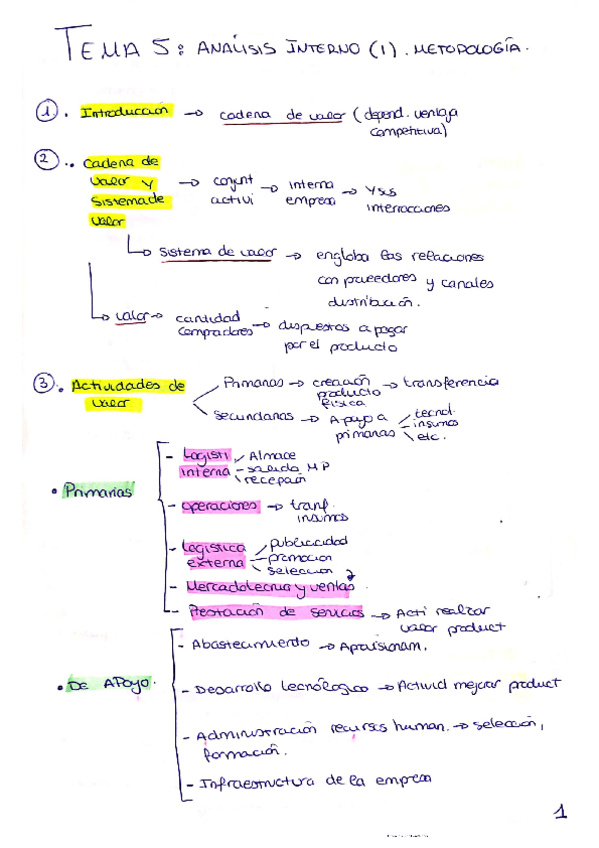 TEMA 5: ANÁLISIS INTERNO (1). METODOLOGÍA.
1. Introducción → cadena de valor (depend. ventaja
competitiva)
2. Cadena de
valor y
Sistema de
valor
→ conjunt
activi
→ interna
empresa
→ y sus
interrocciones
↳ sistema de valor → engloba las relaciones
con proveedores y canales
distribución.
↳ valor → cantidad
compradores → dispuestos a pagar
por el producto
3. Actividades de
valor
Primarias → creación
producto
física
→ transferencia
secundarias → Apoyo a
primarias
tecnol.
insumos
etc.
• Primarias
- Logisti
interna
Almace
salida MP
recepción
- operaciones → tranf.
insumos
- Logística
externa
publicidad
promocion
seleccion
- Mercadotecnia y ventas
- Prestación de servicios → Acti realzar
valor product
• De APoyo.
- Abastecimiento → Aprovisionam.
- Desarrollo tecnólogico → Activid mejorar product
- Administración recursos human. → selección,
formación.
- Infraestructura de la empresa
1